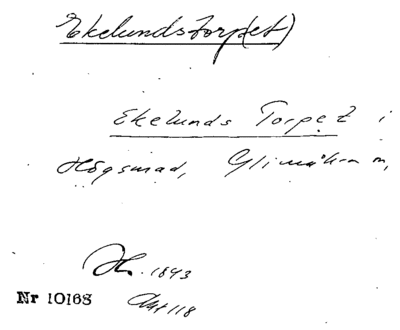 Ekelundstorp(et)
Ekelunds Torpet i
Högsmad, Glimåkra n,
Hs. 1843
Nr 10168
Akt 118